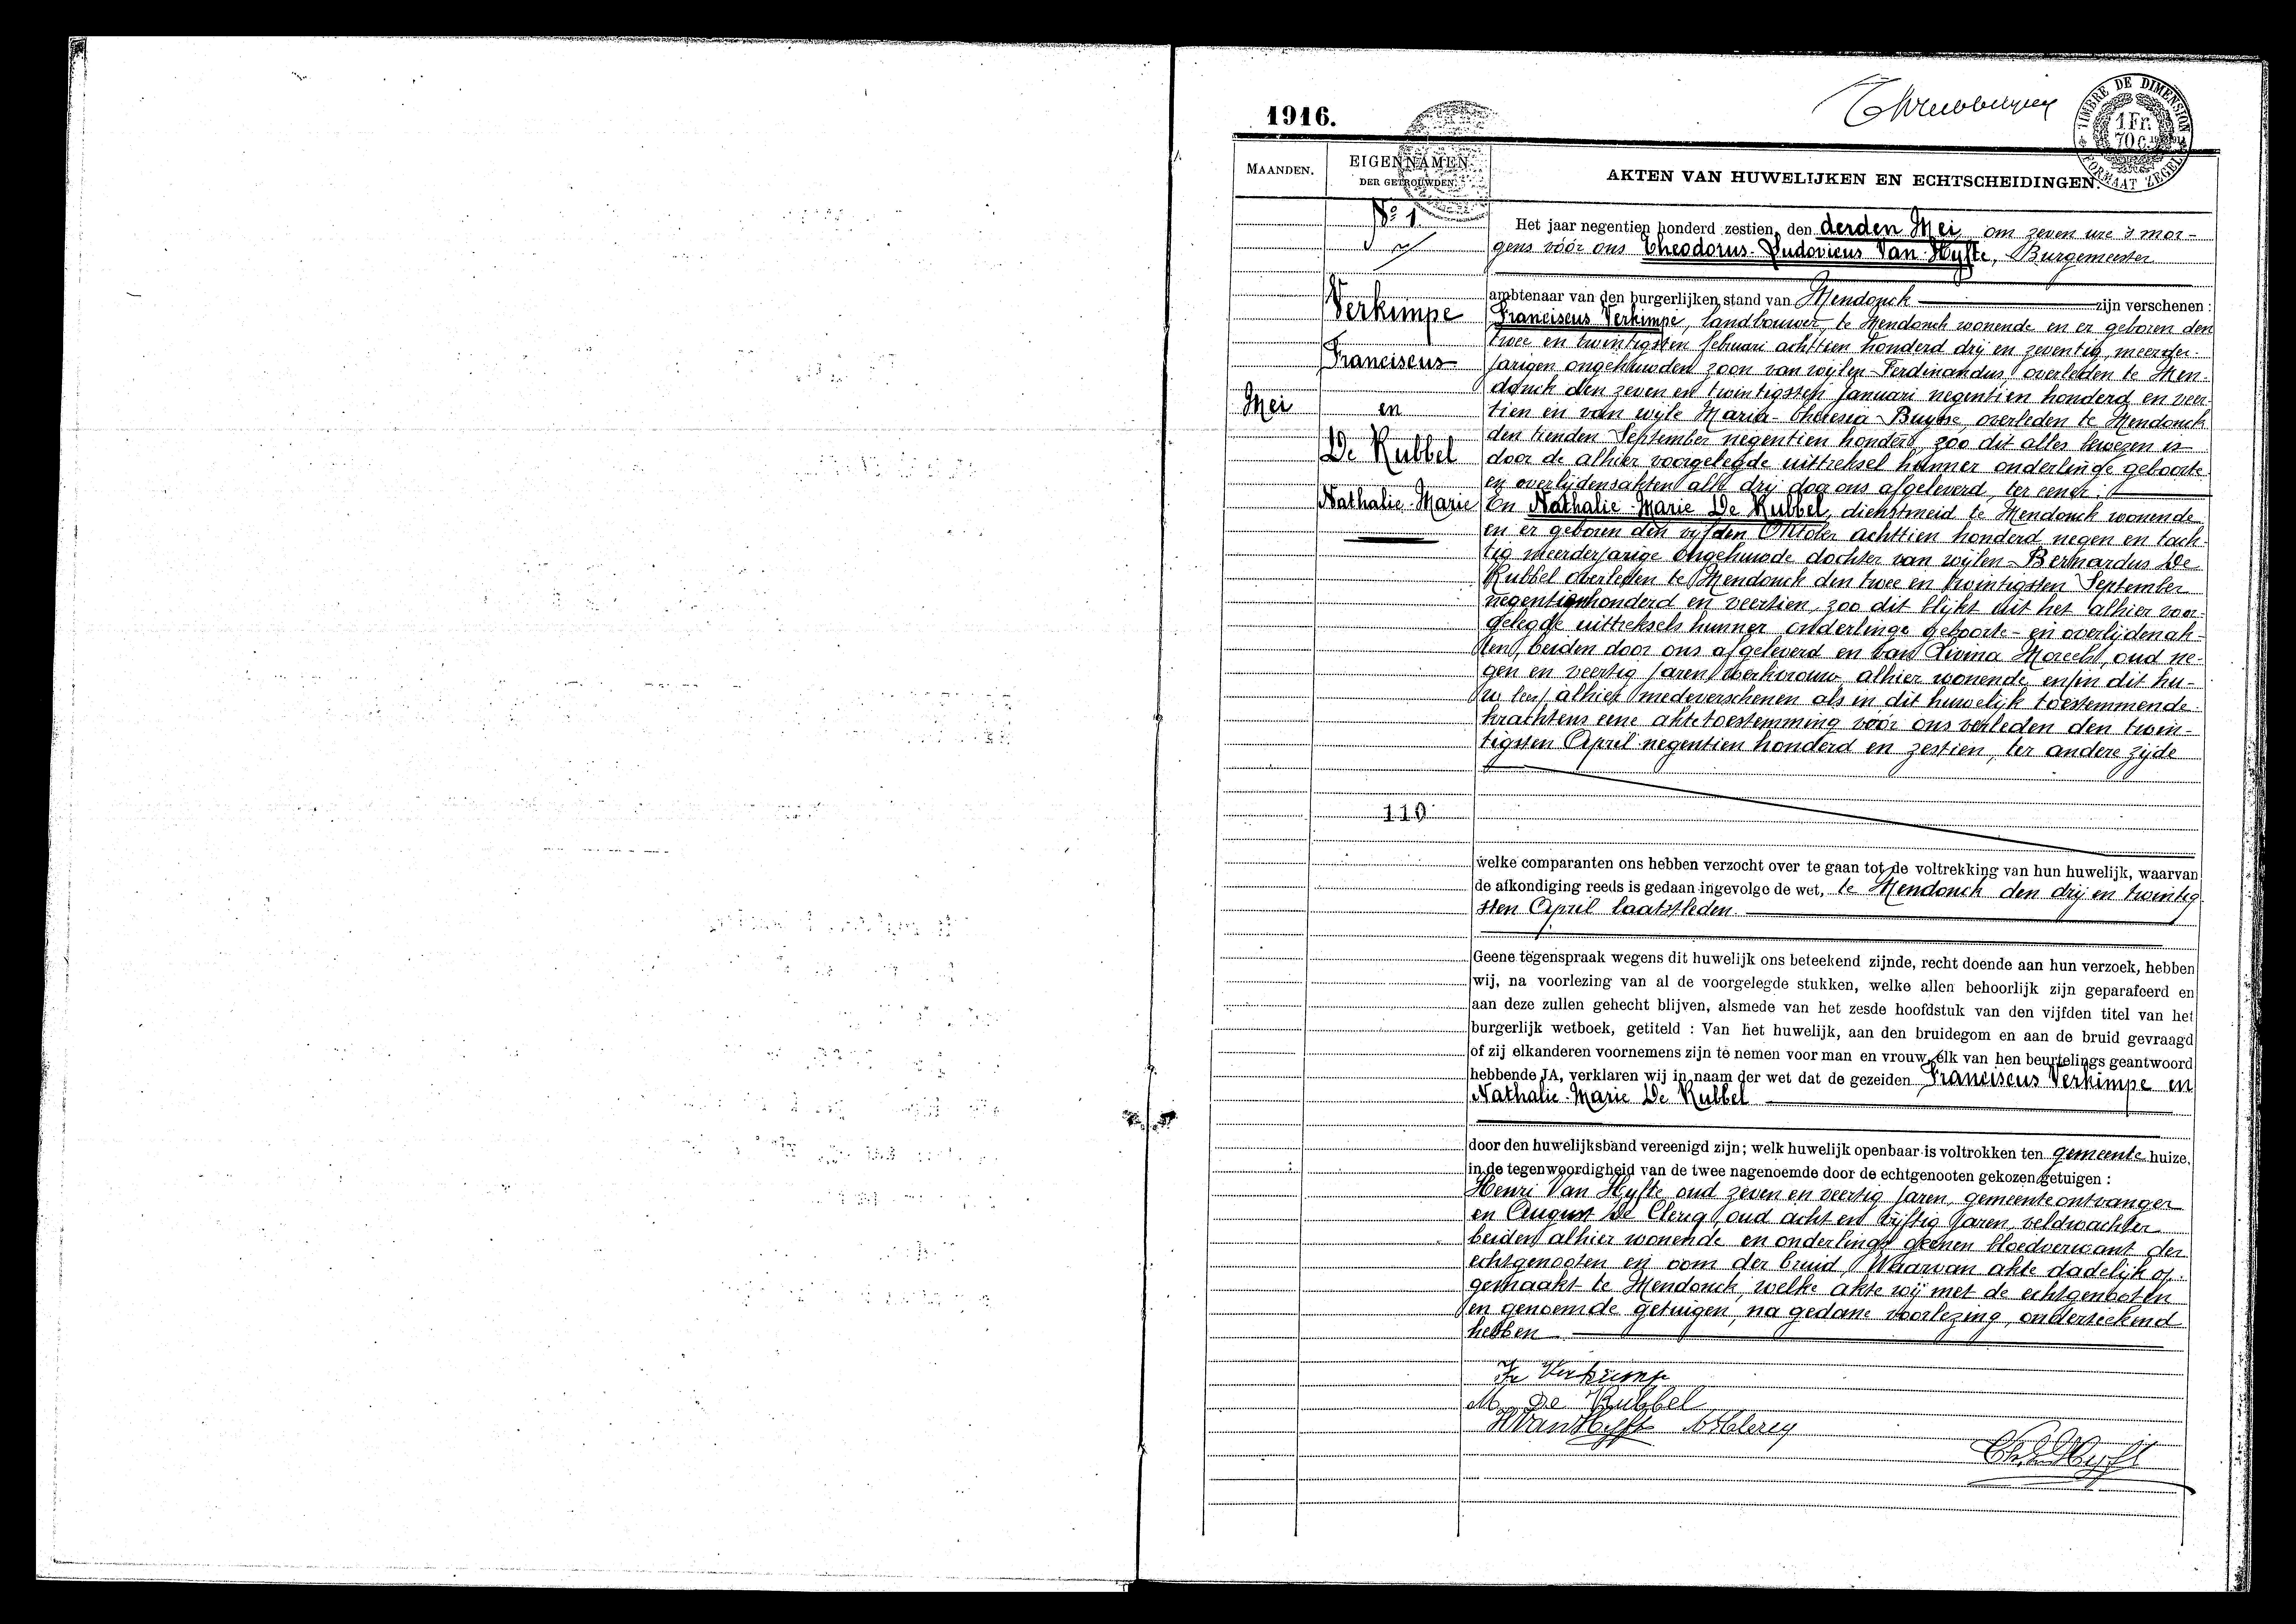 1916.
TIMBRE DE DIMENSION
1 Fr.
70 c.
FORMAAT ZEGEL
MAANDEN.
EIGENNAMEN
DER GETROUWDEN.
AKTEN VAN HUWELIJKEN EN ECHTSCHEIDINGEN.
No 1
Verkimpe
Franciscus
Mei
en
De Kubbel
Nathalie-Marie
110
Het jaar negentien honderd zestien, den derden Mei, om zeven ure 's mor-
gens vóór ons Theodorus-Ludovicus Van Hyfte, Burgemeester
ambtenaar van den burgerlijken stand van Mendonck zijn verschenen :
Franciscus Verkimpe, landbouwer, te Mendonck wonende en er geboren den
twee en twintigsten februari achttien honderd drij en zeventig, meerder-
jarigen ongehuwden zoon van wijlen Ferdinandus, overleden te Men-
donck den zeven en twintigsten Januari negentien honderd en veer-
tien en van wijle Maria-Theresia Buysse, overleden te Mendonck
den tienden September negentien honderd, zoo dit alles bewezen is
door de alhier voorgelegde uittreksel hunner onderlinge geboorte
en overlijdensakten alle drij door ons afgeleverd, ter eener;
En Nathalie-Marie De Kubbel, dienstmeid te Mendonck wonende
en er geboren den vijfden Oktober achttien honderd negen en tach-
tig meerderjarige ongehuwde dochter van wijlen Bernardus De
Kubbel overleden te Mendonck den twee en twintigsten September
negentienhonderd en veertien, zoo dit blijkt uit het alhier voor-
gelegde uittreksels hunner onderlinge geboorte- en overlijdenak-
ten, beiden door ons afgeleverd en van Livina Moreels, oud ne-
gen en veertig jaren, werkvrouw alhier wonende, en in dit hu-
w alhier medeverschenen als in dit huwelijk toestemmende
krachtens eene akte toestemming vóór ons verleden den twin-
tigsten April negentien honderd en zestien, ter andere zijde
welke comparanten ons hebben verzocht over te gaan tot de voltrekking van hun huwelijk, waarvan
de afkondiging reeds is gedaan ingevolge de wet, te Mendonck den drij en twintig-
sten April laatstleden.
Geene tegenspraak wegens dit huwelijk ons beteekend zijnde, recht doende aan hun verzoek, hebben
wij, na voorlezing van al de voorgelegde stukken, welke allen behoorlijk zijn geparafeerd en
aan deze zullen gehecht blijven, alsmede van het zesde hoofdstuk van den vijfden titel van het
burgerlijk wetboek, getiteld : Van het huwelijk, aan den bruidegom en aan de bruid gevraagd
of zij elkanderen voornemens zijn te nemen voor man en vrouw, elk van hen beurtelings geantwoord
hebbende JA, verklaren wij in naam der wet dat de gezeiden Franciscus Verkimpe en
Nathalie-Marie De Kubbel
door den huwelijksband vereenigd zijn; welk huwelijk openbaar is voltrokken ten gemeente huize,
in de tegenwoordigheid van de twee nagenoemde door de echtgenooten gekozen getuigen :
Henri Van Hyfte oud zeven en veertig jaren, gemeenteontvanger
en August De Clercq, oud acht en vijftig jaren, veldwachter
beiden alhier wonende en onderlinge geenen bloedverwant der
echtgenooten en oom der bruid, Waarvan akte dadelijk op-
gemaakt te Mendonck, welke akte wij met de echtgenooten
en genoemde getuigen, na gedane voorlezing, onderteekend
hebben
Fr Verkimpe
M De Kubbel
H Van Hyfte